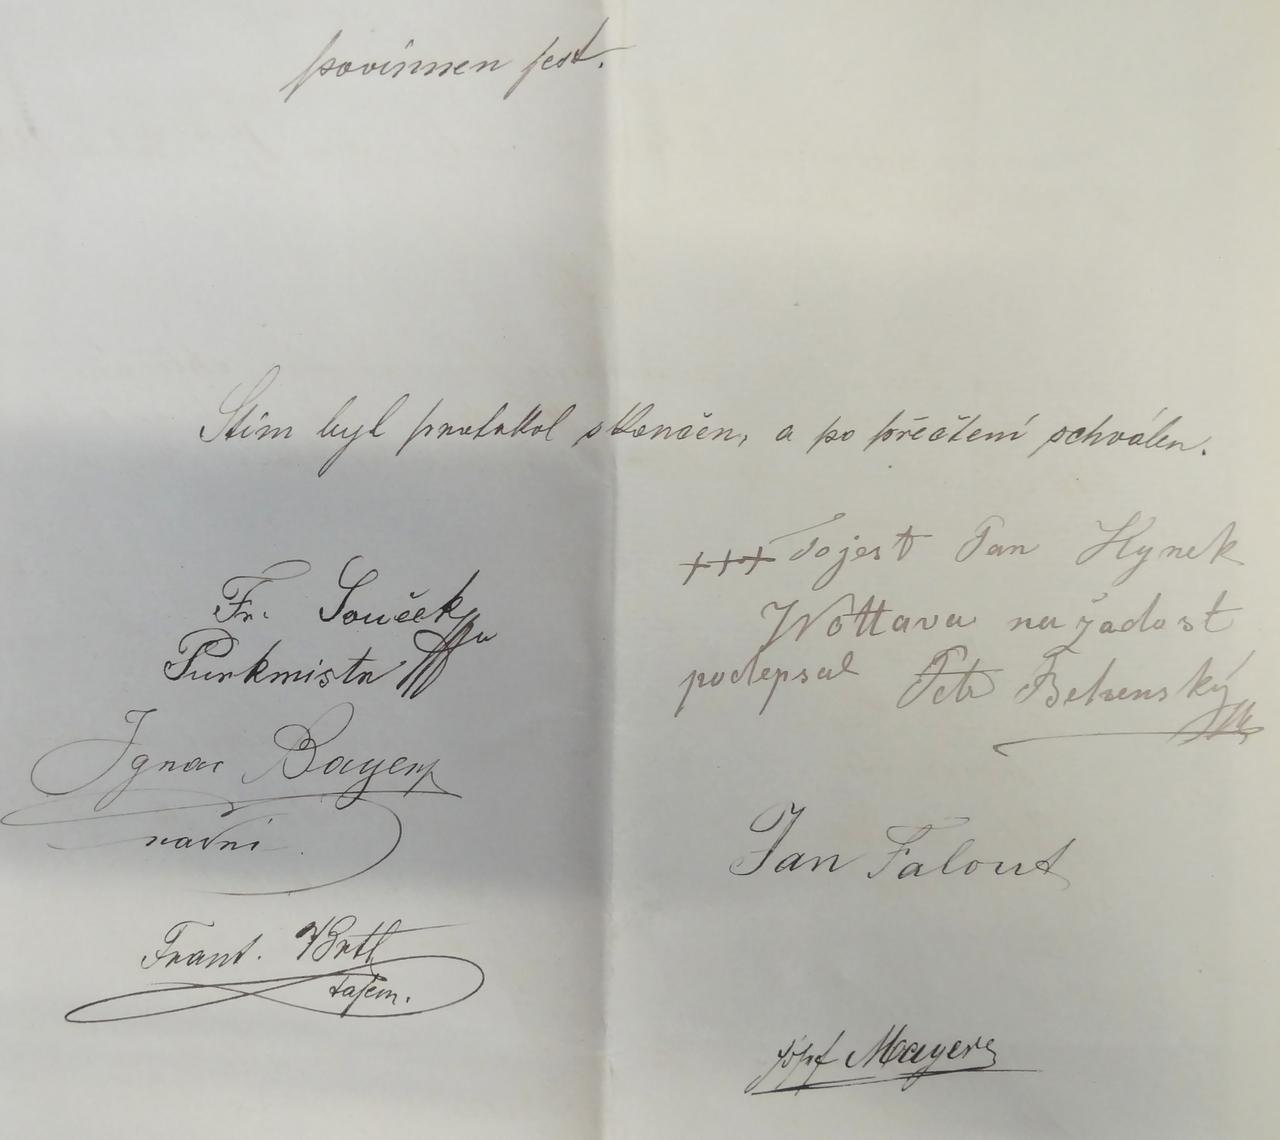 povinnen jest.
Stím byl protokol skončen, a po přečtení schválen.
Fr. Souček
Purkmistr
Ignac Bayer
radní
Frant. Vrtl
tajem.
+++ Tojest Pan Hynek
Wottava na žadost
podepsal Petr
Jan Falout
Josef Mayer